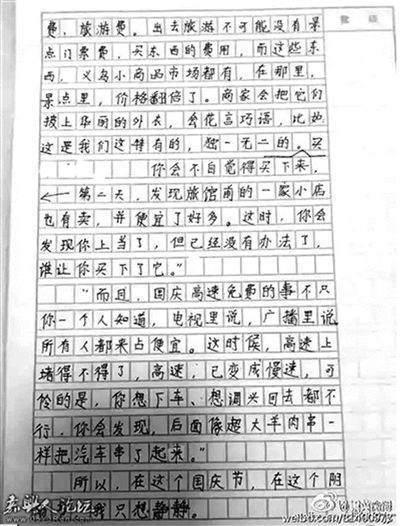 费，旅游费。出去旅游不可能没有景
点门票费，买东西的费用，而这些东
西，义乌小商品市场都有，在那里，
景点里，价格翻倍了。商家会把它们
披上华丽的外衣，会花言巧语，比如
这是我们这特有的，独一无二的。买
你会不自觉得买下来，
第二天，发现旅馆前的一家小店
也有卖，并便宜了好多。这时，你会
发现你上当了，但已经没有办法了，
谁让你买下了它。”
“而且，国庆高速免费的事不只
你一个人知道，电视里说，广播里说
所有人都来占便宜。这时候，高速上
堵得不得了，高速，已变成慢速，可
怜的是，你想下车、想调头回去都不
行，你会发现，后面像超大羊肉串一
样把汽车串了起来。”
所以，在这个国庆节，在这个阴
我只想静静。